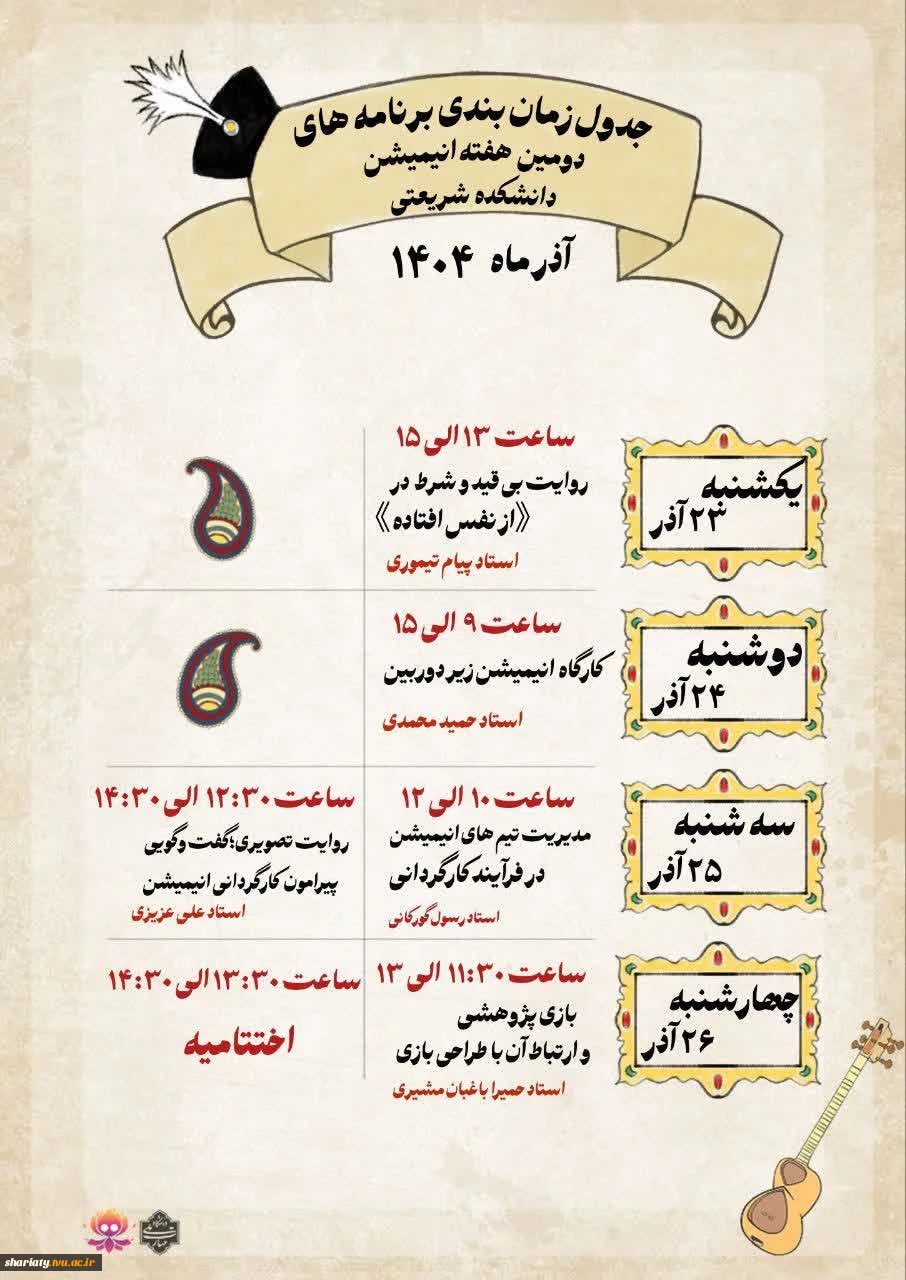 جدول زمان بندی برنامه های
دومین هفته انیمیشن
دانشکده شریعتی
آذر ماه ۱۴۰۴
یکشنبه
۲۳ آذر
ساعت ۱۳ الی ۱۵
روایت بی قید و شرط در
《از نفس افتاده》
استاد پیام تیموری
دوشنبه
۲۴ آذر
ساعت ۹ الی ۱۵
کارگاه انیمیشن زیر دوربین
استاد حمید محمدی
سه شنبه
۲۵ آذر
ساعت ۱۰ الی ۱۲
مدیریت تیم های انیمیشن
در فرآیند کارگردانی
استاد رسول گورکانی
ساعت ۱۲:۳۰ الی ۱۴:۳۰
روایت تصویری؛گفت وگویی
پیرامون کارگردانی انیمیشن
استاد علی عزیزی
چهارشنبه
۲۶ آذر
ساعت ۱۱:۳۰ الی ۱۳
بازی پژوهشی
و ارتباط آن با طراحی بازی
استاد حمیرا باغبان مشیری
ساعت ۱۳:۳۰ الی ۱۴:۳۰
اختتامیه
shariaty.tvu.ac.ir